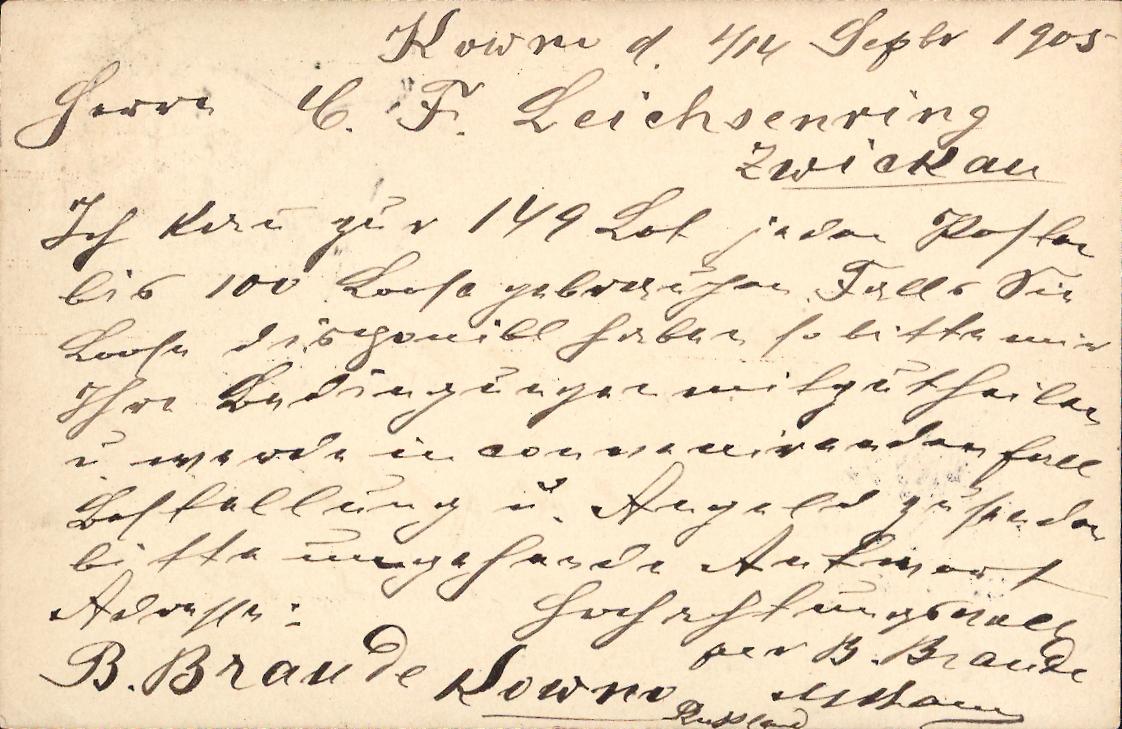 Kowno d. 1/14 Septbr 1905
Herrn C. F. Leichsenring
Zwickau
Ich kan zur 149 Lot jeden Posten
bis 100 Loose gebrauchen Falls Sie
Loose disponibl haben so bitte mir
Ihre Bedingungen mitzutheilen
u werde in convenirenden fall
Bestellung u. Angeld zusenden
bitte umgehende Antwort
Adresse: Hochachtungsvoll
per B. Braude
B. Braude Kowno
Russland